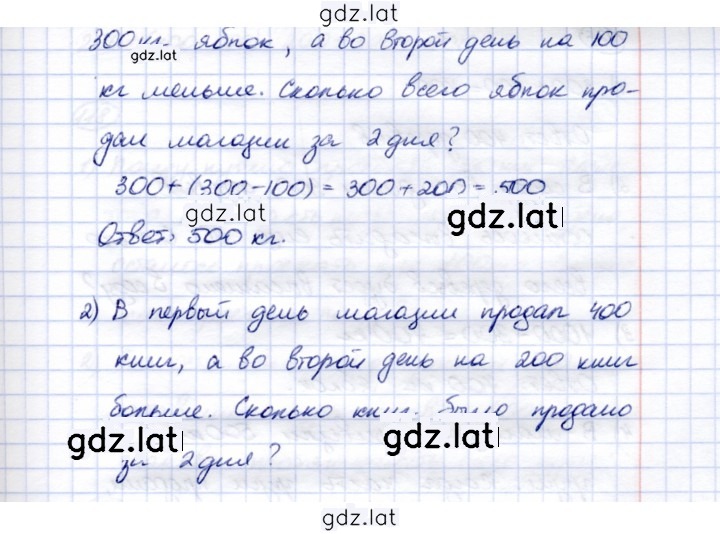 gdz.lat
300 яблок, а во второй день на 100
gdz.lat
кг меньше. Сколько всего яблок про-
дал магазин за 2 дня?
300+(300-100) = 300+200 = 500
gdz.lat gdz.lat
Ответ: 500 кг.
2) В первый день магазин продал 400
книг, а во второй день на 200 книг
больше. Сколько книг было продано
gdz.lat gdz.lat
за 2 дня?
gdz.lat